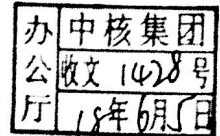 办公厅
中核集团
收文 1428号
18年6月5日